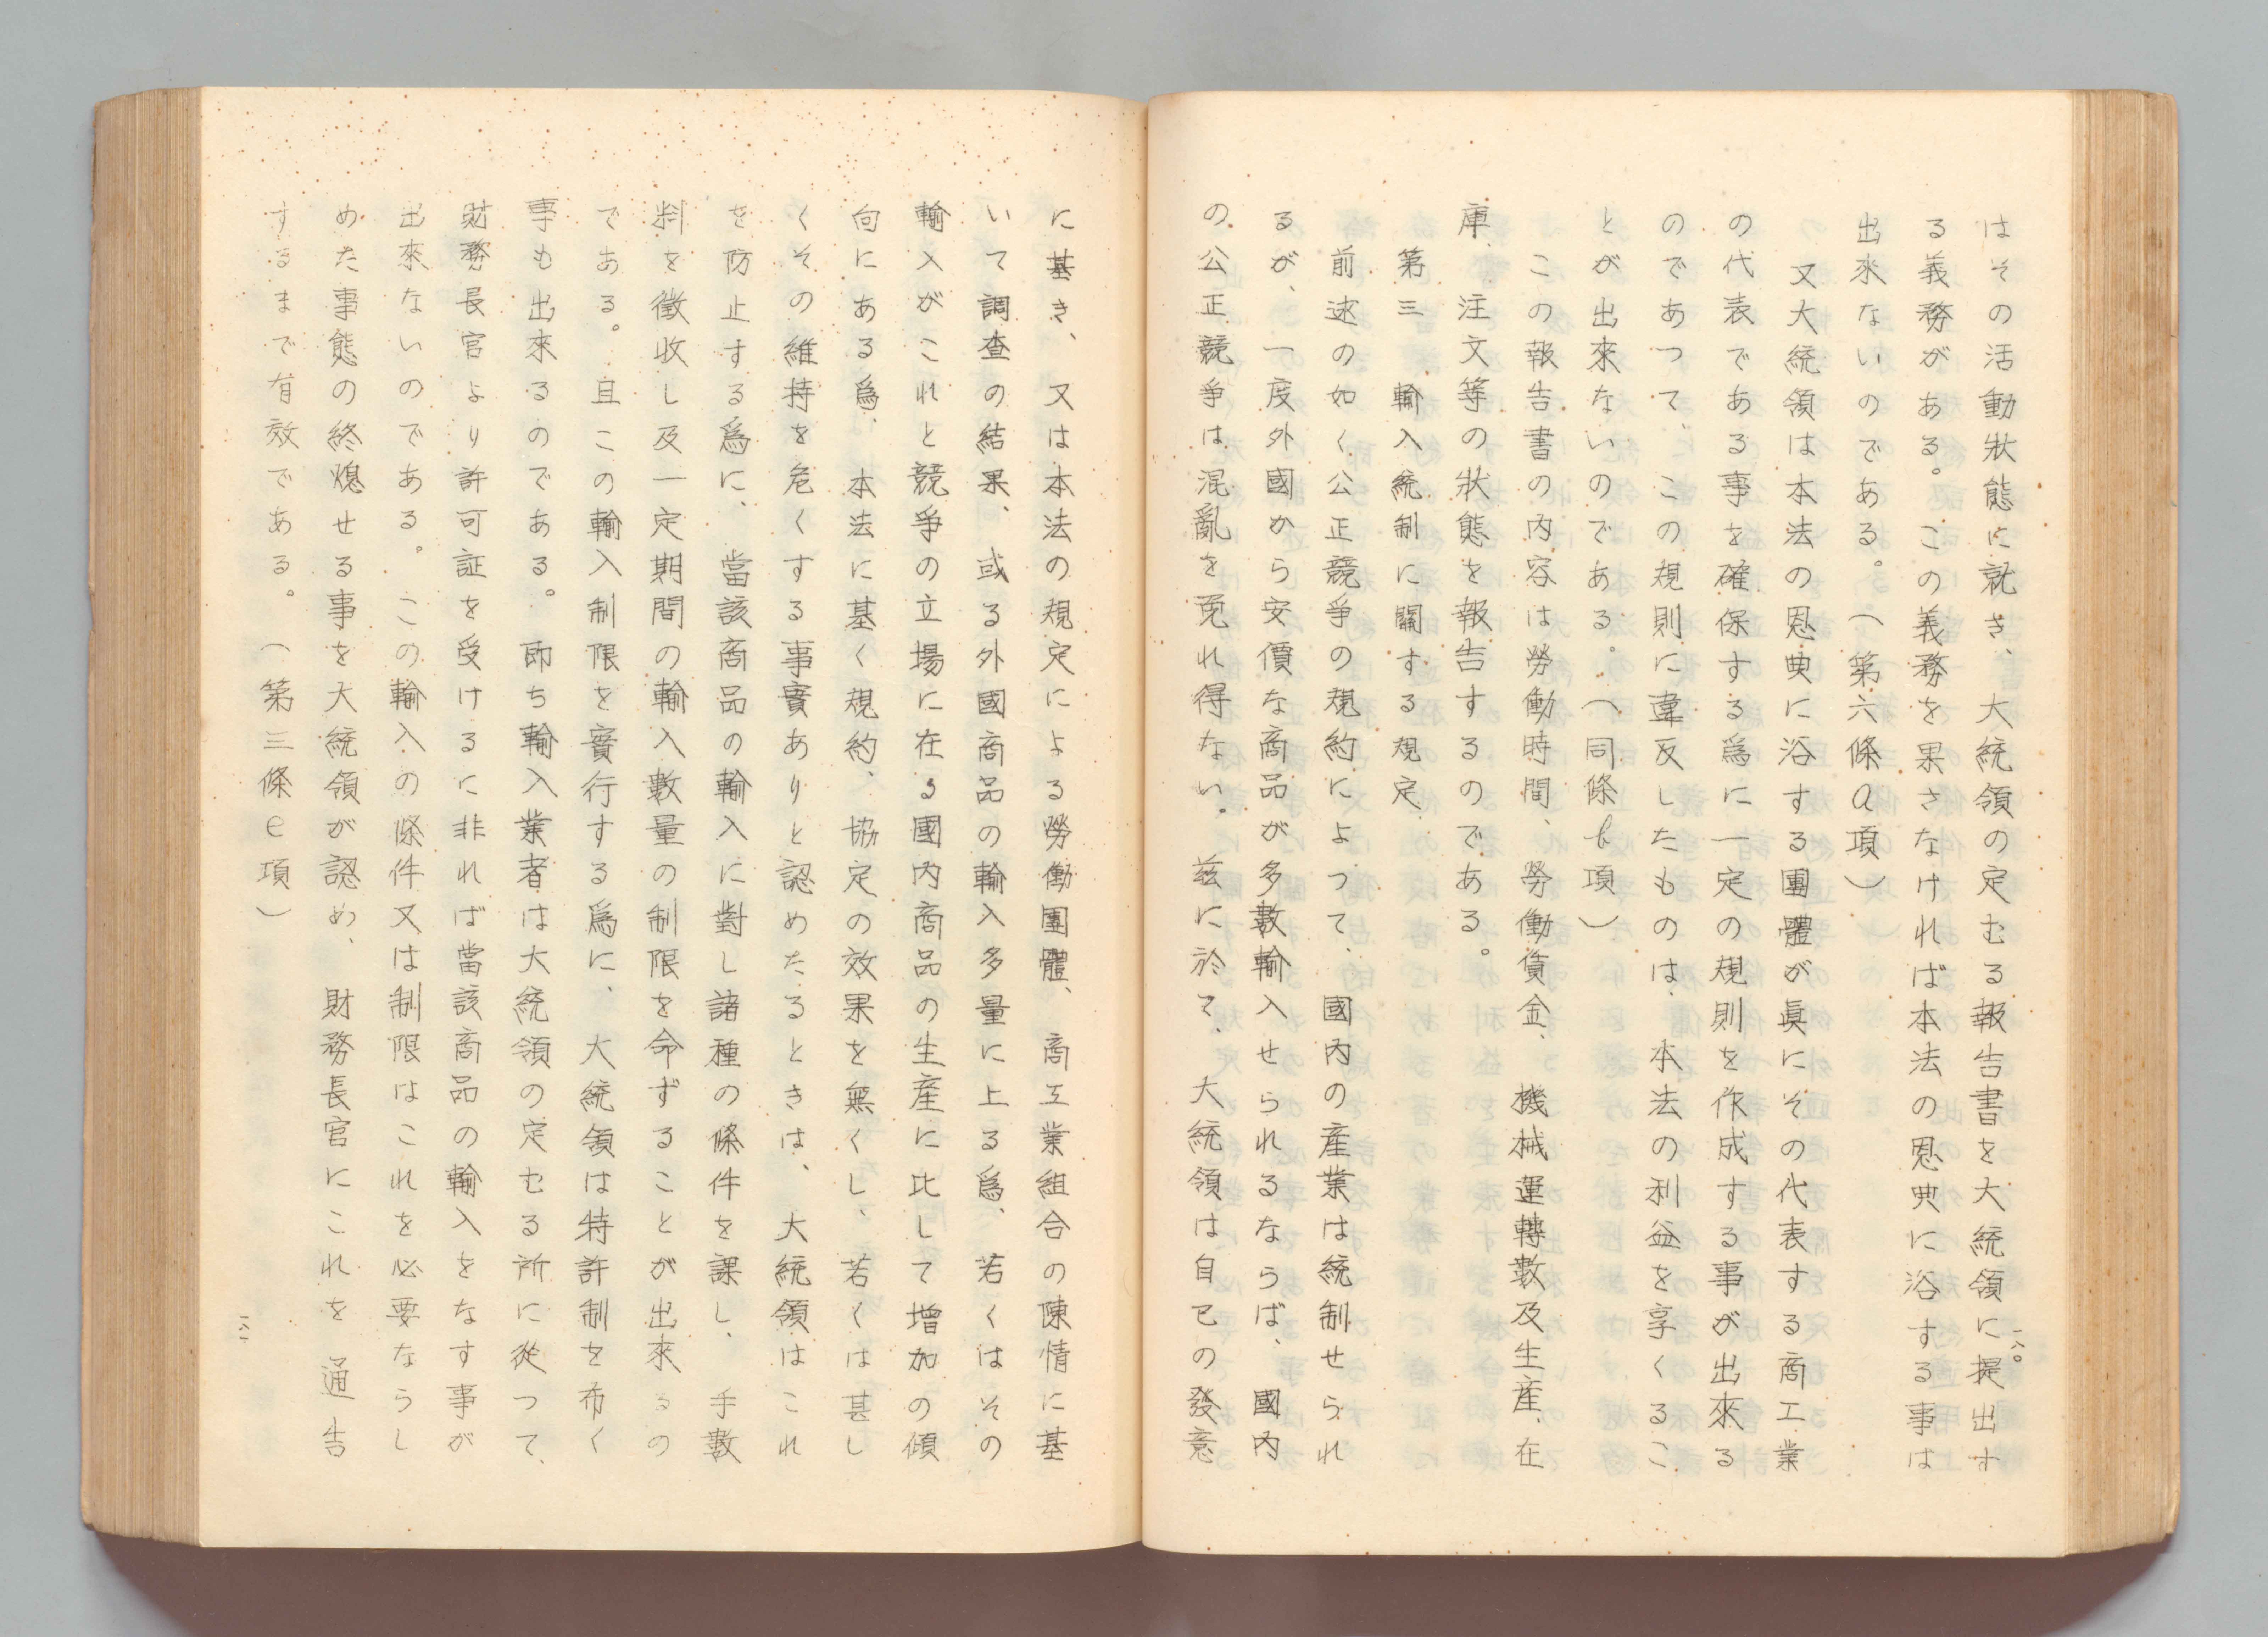 はその活動狀態に就き、大統領の定むる報告書を大統領に提出す
る義務がある。この義務を果さなければ本法の恩典に浴する事は
出來ないのである。（第六條a項）
又大統領は本法の恩典に浴する團體が眞にその代表する商工業
の代表である事を確保する爲に一定の規則を作成する事が出來る
のであつて、この規則に違反したものは、本法の利益を享くるこ
とが出來ないのである。（同條b項）
この報告書の内容は勞働時間、勞働賃金、機械運轉數及生産、在
庫、注文等の狀態を報告するのである。
第三 輸入統制に關する規定
前述の如く公正競爭の規約によつて、國内の産業は統制せられ
るが、一度外國から安價な商品が多數輸入せられるならば、國内
の公正競爭は混亂を免れ得ない。茲に於て、大統領は自己の發意
一八〇
に基き、又は本法の規定による勞働團體、商工業組合の陳情に基
いて調査の結果、或る外國商品の輸入多量に上る爲、若くはその
輸入がこれと競爭の立場に在る國内商品の生産に比して增加の傾
向にある爲、本法に基く規約、協定の效果を無くし、若くは甚し
くその維持を危くする事實ありと認めたるときは、大統領はこれ
を防止する爲に、當該商品の輸入に對し諸種の條件を課し、手數
料を徵收し及一定期間の輸入數量の制限を命ずることが出來るの
である。且この輸入制限を實行する爲に、大統領は特許制を布く
事も出來るのである。卽ち輸入業者は大統領の定むる所に從つて、
財務長官より許可証を受けるに非れば當該商品の輸入をなす事が
出來ないのである。この輸入の條件又は制限はこれを必要ならし
めた事態の終熄せる事を大統領が認め、財務長官にこれを通告
するまで有效である。（第三條e項）
一八一